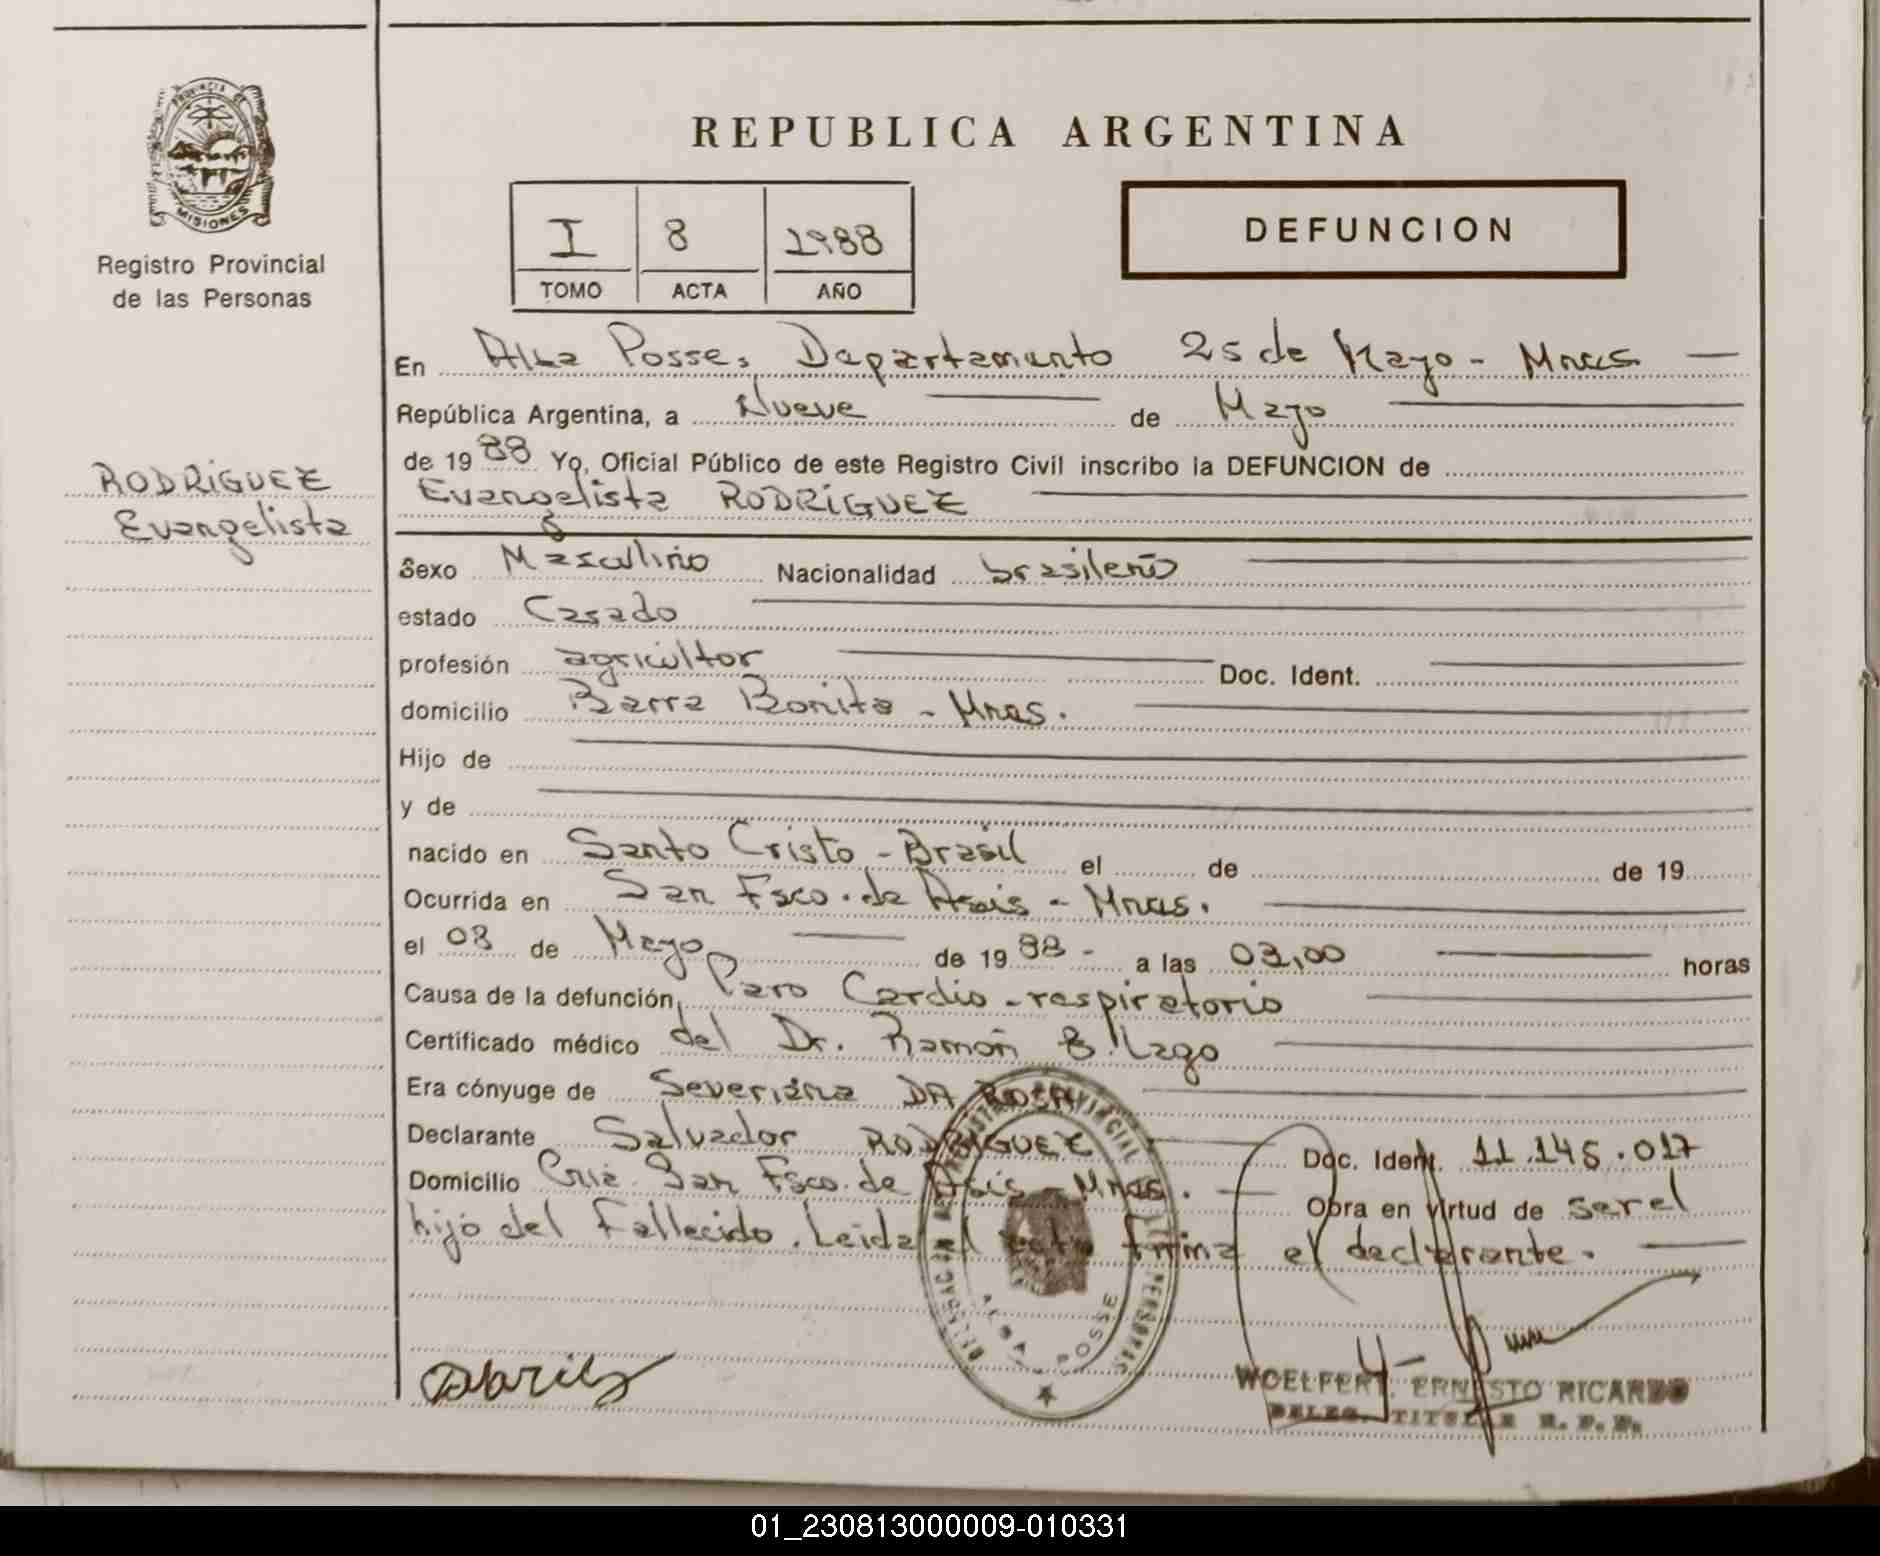 PROVINCIA DE
MISIONES
Registro Provincial
de las Personas
REPUBLICA ARGENTINA
I 8 1988
TOMO ACTA AÑO
DEFUNCION
En Alba Posse, Departamento 25 de Mayo - Mnes.
República Argentina, a Nueve de Mayo
de 1988 Yo, Oficial Público de este Registro Civil inscribo la DEFUNCION de
Evangelista RODRIGUEZ
RODRIGUEZ
Evangelista
Sexo Masculino Nacionalidad brasileño
estado Casado
profesión agricultor Doc. Ident.
domicilio Barra Bonita - Mnes.
Hijo de
y de
nacido en Santo Cristo - Brasil el de de 19
Ocurrida en San Fsco. de Asis - Mnes.
el 08 de Mayo de 1988 - a las 03,00 horas
Causa de la defunción Paro Cardio-respiratorio
Certificado médico del Dr. Ramón E. Lago
Era cónyuge de Severiana DA ROSA
Declarante Salvador RODRIGUEZ Doc. Ident. 11.145.017
Domicilio San Fsco. de Asis - Mnes. Obra en virtud de ser el
hijo del Fallecido. Leida el acta Firma el declarante.
ALBA POSSE
WOELFERT, ERNESTO RICARDO
DELEG. TITULAR R. P. P.
01_230813000009-010331